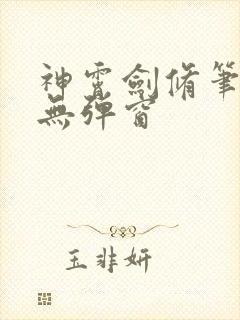 神霄劍脩筆
無彈窗
玉非妍